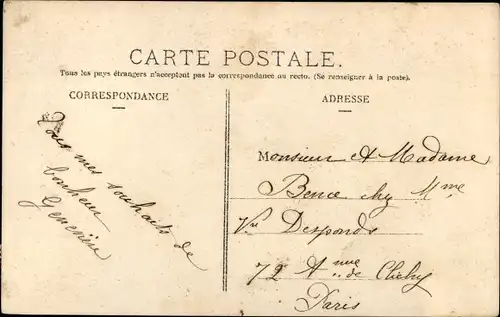 CARTE POSTALE.
Tous les pays étrangers n'acceptent pas la correspondance au recto. (Se renseigner à la poste).
CORRESPONDANCE
Tous mes souhaits de
bonheur
Geneviève
ADRESSE
Monsieur et Madame
chez Mme
Vve Desponds
72 Anue de Clichy
Paris